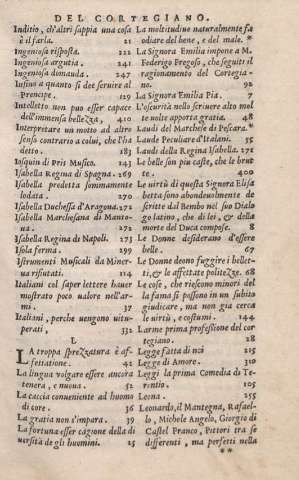 DEL CORTEGIANO.
Inditio, ch'altri sappia una cosa
è il farla. 21
Ingeniosa risposta. 222
Ingeniosa argutia. 241
Ingeniosa domauda. 247
Insino a quanto si dee seruire al
Prencipe. 129
Intelletto non può esser capace
dell'immensa bellezza, 410
Interpretare un motto ad altro
senso contrario a colui, che l'ha
detto. 183
Iosquin di Pris Musico. 143
Isabella Regina di Spagna. 269
Isabella predetta sommamente
lodata. 270
Isabella Duchessa d'Aragona. 271
Isabella Marchesana di Manto-
ua. 272
Isabella Regina di Napoli. 273
Isola ferma. 299
Istrumenti Musicali da Miner-
ua rifiutati. 114
Italiani col saper lettere hauer
mostrato poco valore nell'ar-
mi. 37
Italiani, perche uengono uitu-
perati, 332
L
LA troppa sprezzatura è af-
fettatione. 42
La lingua volgare essere ancora
tenera, e nuoua. 52
La caccia conueniente ad huomo
di core. 36
La gratia non s'impara. 39
La fortuna esser cagione della di
uersità de gli huomini. 25
La moltitudine naturalmente fa
odiare del bene, e del male. *
La Signora Emilia impone a M.
Federigo Fregoso, che seguiti il
ragionamento del Cortegia-
no. 92
La Signora Emilia Pia. 7
L'oscurità nello scriuere alto mol
te uolte apporta gratia. 48
Laudi del Marchese di Pescara. *
Laude Peculiare d'Italiani. 55
Laudi della Regina Isabella. 271
Le belle son piu caste, che le brut
te. 400
Le uirtù di questa Signora Elisa
betta sono abondeuolmente de
scritte dal Bembo nel suo Dialo
go latino, che di lei, & della
morte del Duca compose. 8
Le Donne desiderano d'essere
belle. 67
Le Donne deono fuggire i bellet-
ti, & le affettate politezze. 68
Le cose, che riescono minori del
la fama si possono in un subito
giudicare, ma non gia cerca
le uirtù, e costumi. 144
L'arme prima professione del cor
tegiano. 28
Legge fatta di noi 215
Legge di Amore. 310
Leggi la prima Comedia di Te-
rentio. 105
Leona. 255
Leonardo, il Mantegna, Rafael-
lo, Michele Angelo, Giorgio di
Castel Franco, Pittori tra se
differenti, ma perfetti nella
**